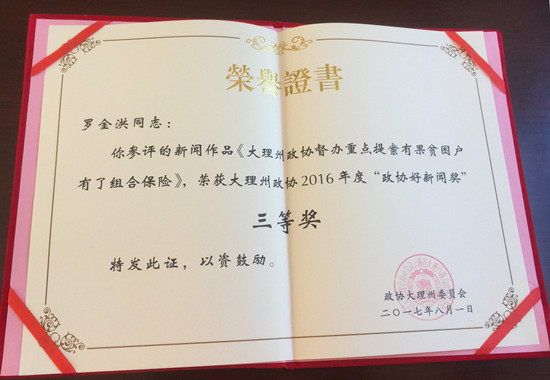 榮譽證書
罗金洪同志：
你参评的新闻作品《大理州政协督办重点提案有果贫困户
有了组合保险》，荣获大理州政协2016年度“政协好新闻奖”
三等奖
特发此证，以资鼓励。
政协大理州委员会
二〇一七年八月一日